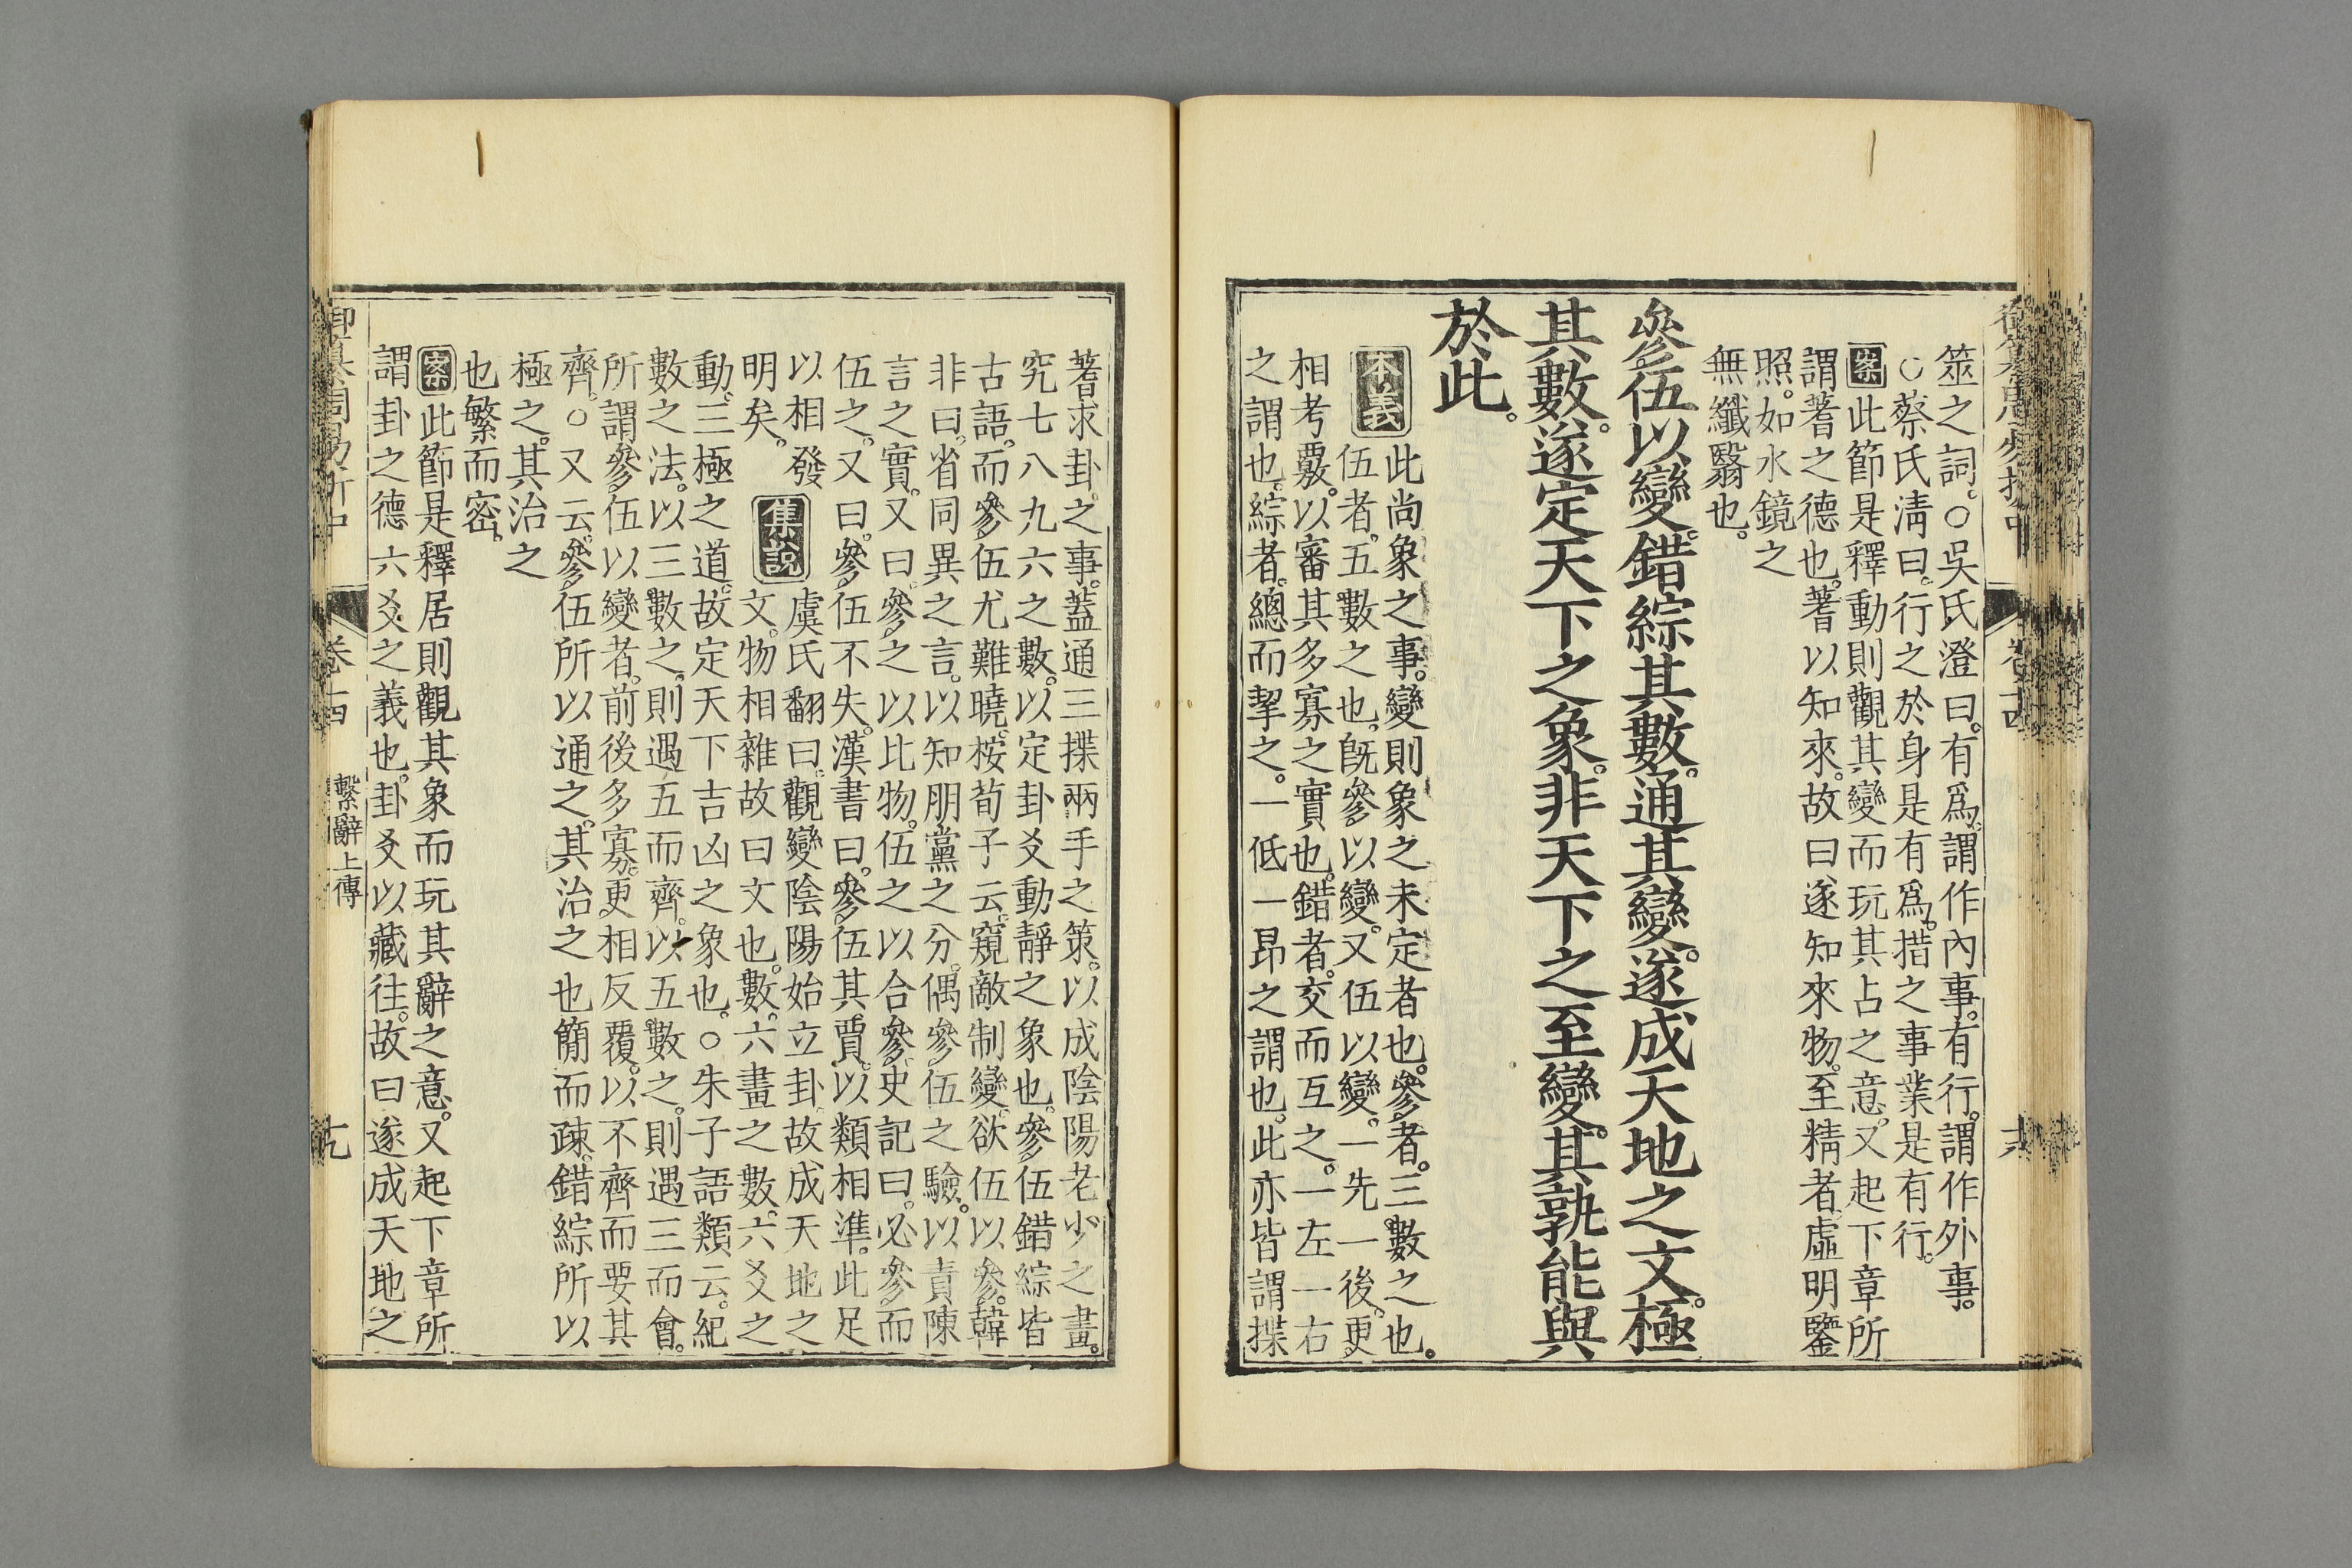 筮之詞。○吳氏澄曰。有爲。謂作內事。有行。謂作外事。
○蔡氏淸曰。行之於身是有爲。措之事業是有行。
案此節是釋動則觀其變而玩其占之意。又起下章所
謂蓍之德也。蓍以知來。故曰遂知來物。至精者。虛明鑒
照。如水鏡之
無纖翳也。
參伍以變。錯綜其數。通其變。遂成天地之文。極
其數。遂定天下之象。非天下之至變。其孰能與
於此。
本義
此尚象之事。變則象之未定者也。參者。三數之也。
伍者。五數之也。旣參以變。又伍以變。一先一後。更
相考覈。以審其多寡之實也。錯者。交而互之。一左一右
之謂也。綜者。總而挈之。一低一昂之謂也。此亦皆謂揲
蓍求卦之事。蓋通三揲兩手之策。以成陰陽老少之畫。
究七八九六之數。以定卦爻動靜之象也。參伍錯綜皆
古語。而參伍尤難曉。按荀子云。窺敵制變。欲伍以參。韓
非曰。省同異之言。以知朋黨之分。偶參伍之驗。以責陳
言之實。又曰。參之以比物。伍之以合參。史記曰。必參而
伍之。又曰。參伍不失。漢書曰。參伍其賈。以類相準。此足
以相發
明矣。
集說
虞氏翻曰。觀變陰陽始立卦。故成天地之
文。物相雜故曰文也。數。六畫之數。六爻之
動。三極之道。故定天下吉凶之象也。○朱子語類云。紀
數之法。以三數之。則遇五而齊。以五數之。則遇三而會。
所謂參伍以變者。前後多寡。更相反覆。以不齊而要其
齊。○又云。參伍所以通之。其治之也簡而疎。錯綜所以
極之。其治之
也繁而密。
案此節是釋居則觀其象而玩其辭之意。又起下章所
謂卦之德六爻之義也。卦爻以藏往。故曰遂成天地之
御纂周易折中
卷十四
繫辭上傳
十九